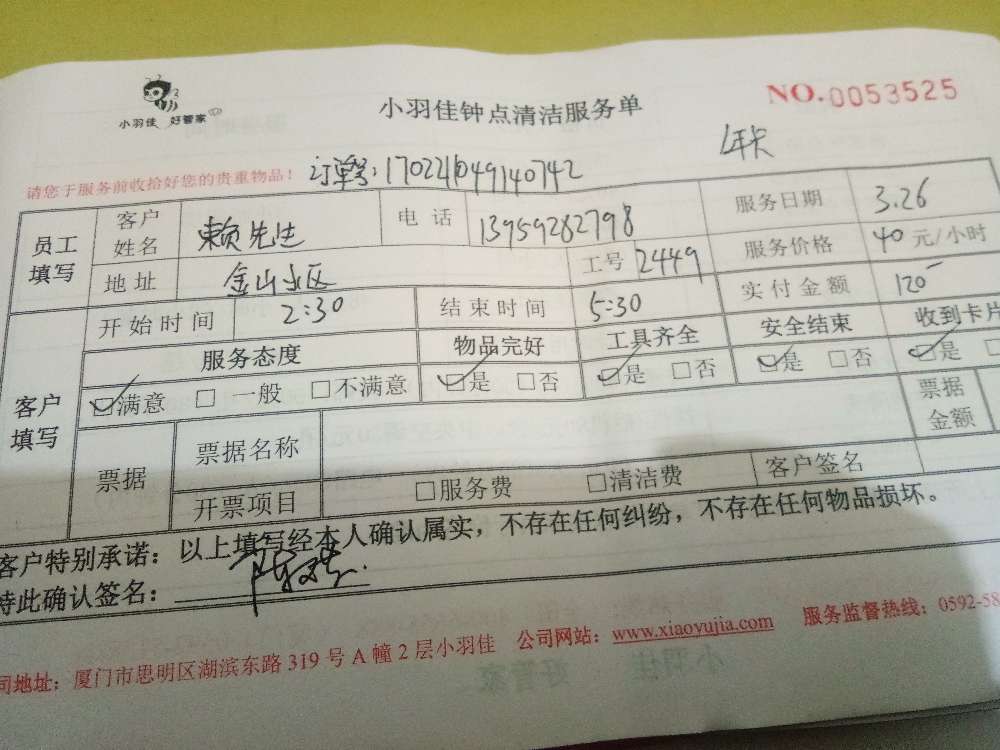 小羽佳 好管家
小羽佳钟点清洁服务单
NO.0053525
年卡
请您于服务前收拾好您的贵重物品！
订单号:170221049140742
员工填写 客户姓名 赖先生 电话 13959282798 服务日期 3.26
地址 金山小区 工号 2449 服务价格 40元/小时
开始时间 2:30 结束时间 5:30 实付金额 120
客户填写 服务态度 物品完好 工具齐全 安全结束 收到卡片
☑满意 □一般 □不满意 ☑是 □否 ☑是 □否 ☑是 □否 ☑是 □
票据 票据名称 票据金额
开票项目 □服务费 □清洁费 客户签名
客户特别承诺：以上填写经本人确认属实，不存在任何纠纷，不存在任何物品损坏。
特此确认签名：
司地址：厦门市思明区湖滨东路319号A幢2层小羽佳 公司网站：www.xiaoyujia.com 服务监督热线：0592-58